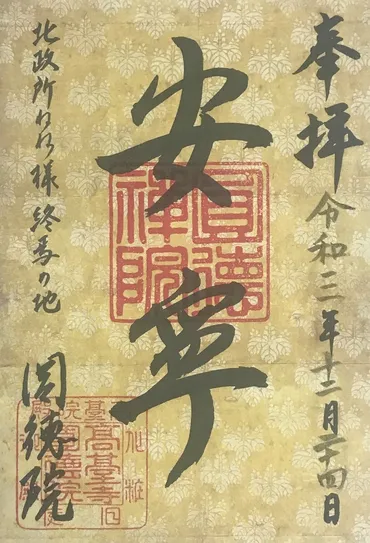 奉拝 令和三年十二月二十四日
安寧
圓徳禪院
北政所ねね様 終焉の地
圓徳院
高臺寺